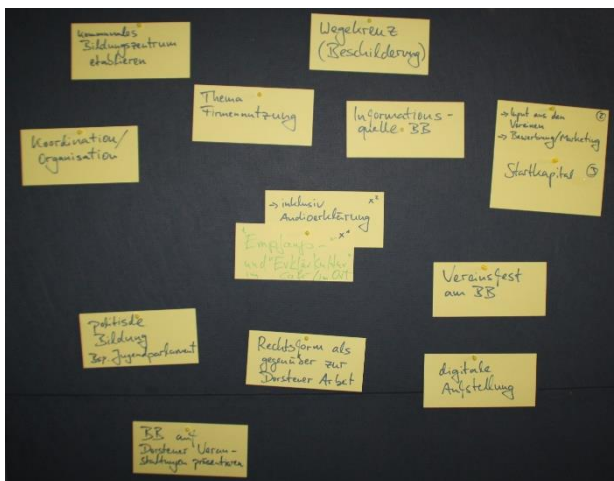 kommunales
Bildungszentrum
etablieren
Wegekreuz
(Beschilderung)
Thema
Firmennutzung
Informations-
quelle BB
→ Input aus den
Vereinen
→ Bewerbung/Marketing
Startkapital
Koordination/
Organisation
→ inklusiv
Audioerklärung
"Empfangs-
und "Erklärkultur"
im
Vereinsfest
am BB
politische
Bildung
Bsp. Jugendparlament
Rechtsform als
gegenüber zur
Dorstener Arbeit
digitale
Aufstellung
BB auf
Dorstener Veran-
staltungen präsentieren